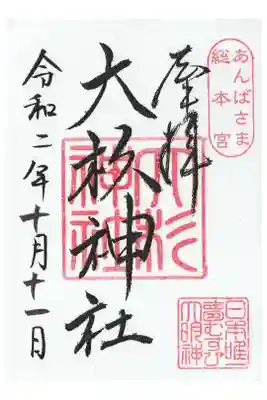 あんばさま
総本宮
奉拝
日本唯一
夢むすび
大明神
大杉神社
大杉
神社
令和二年十月十一日